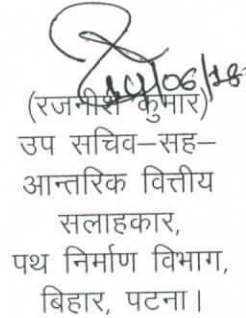 14/06/18
(रजनीश कुमार)
उप सचिव–सह–
आन्तरिक वित्तीय
सलाहकार,
पथ निर्माण विभाग,
बिहार, पटना।